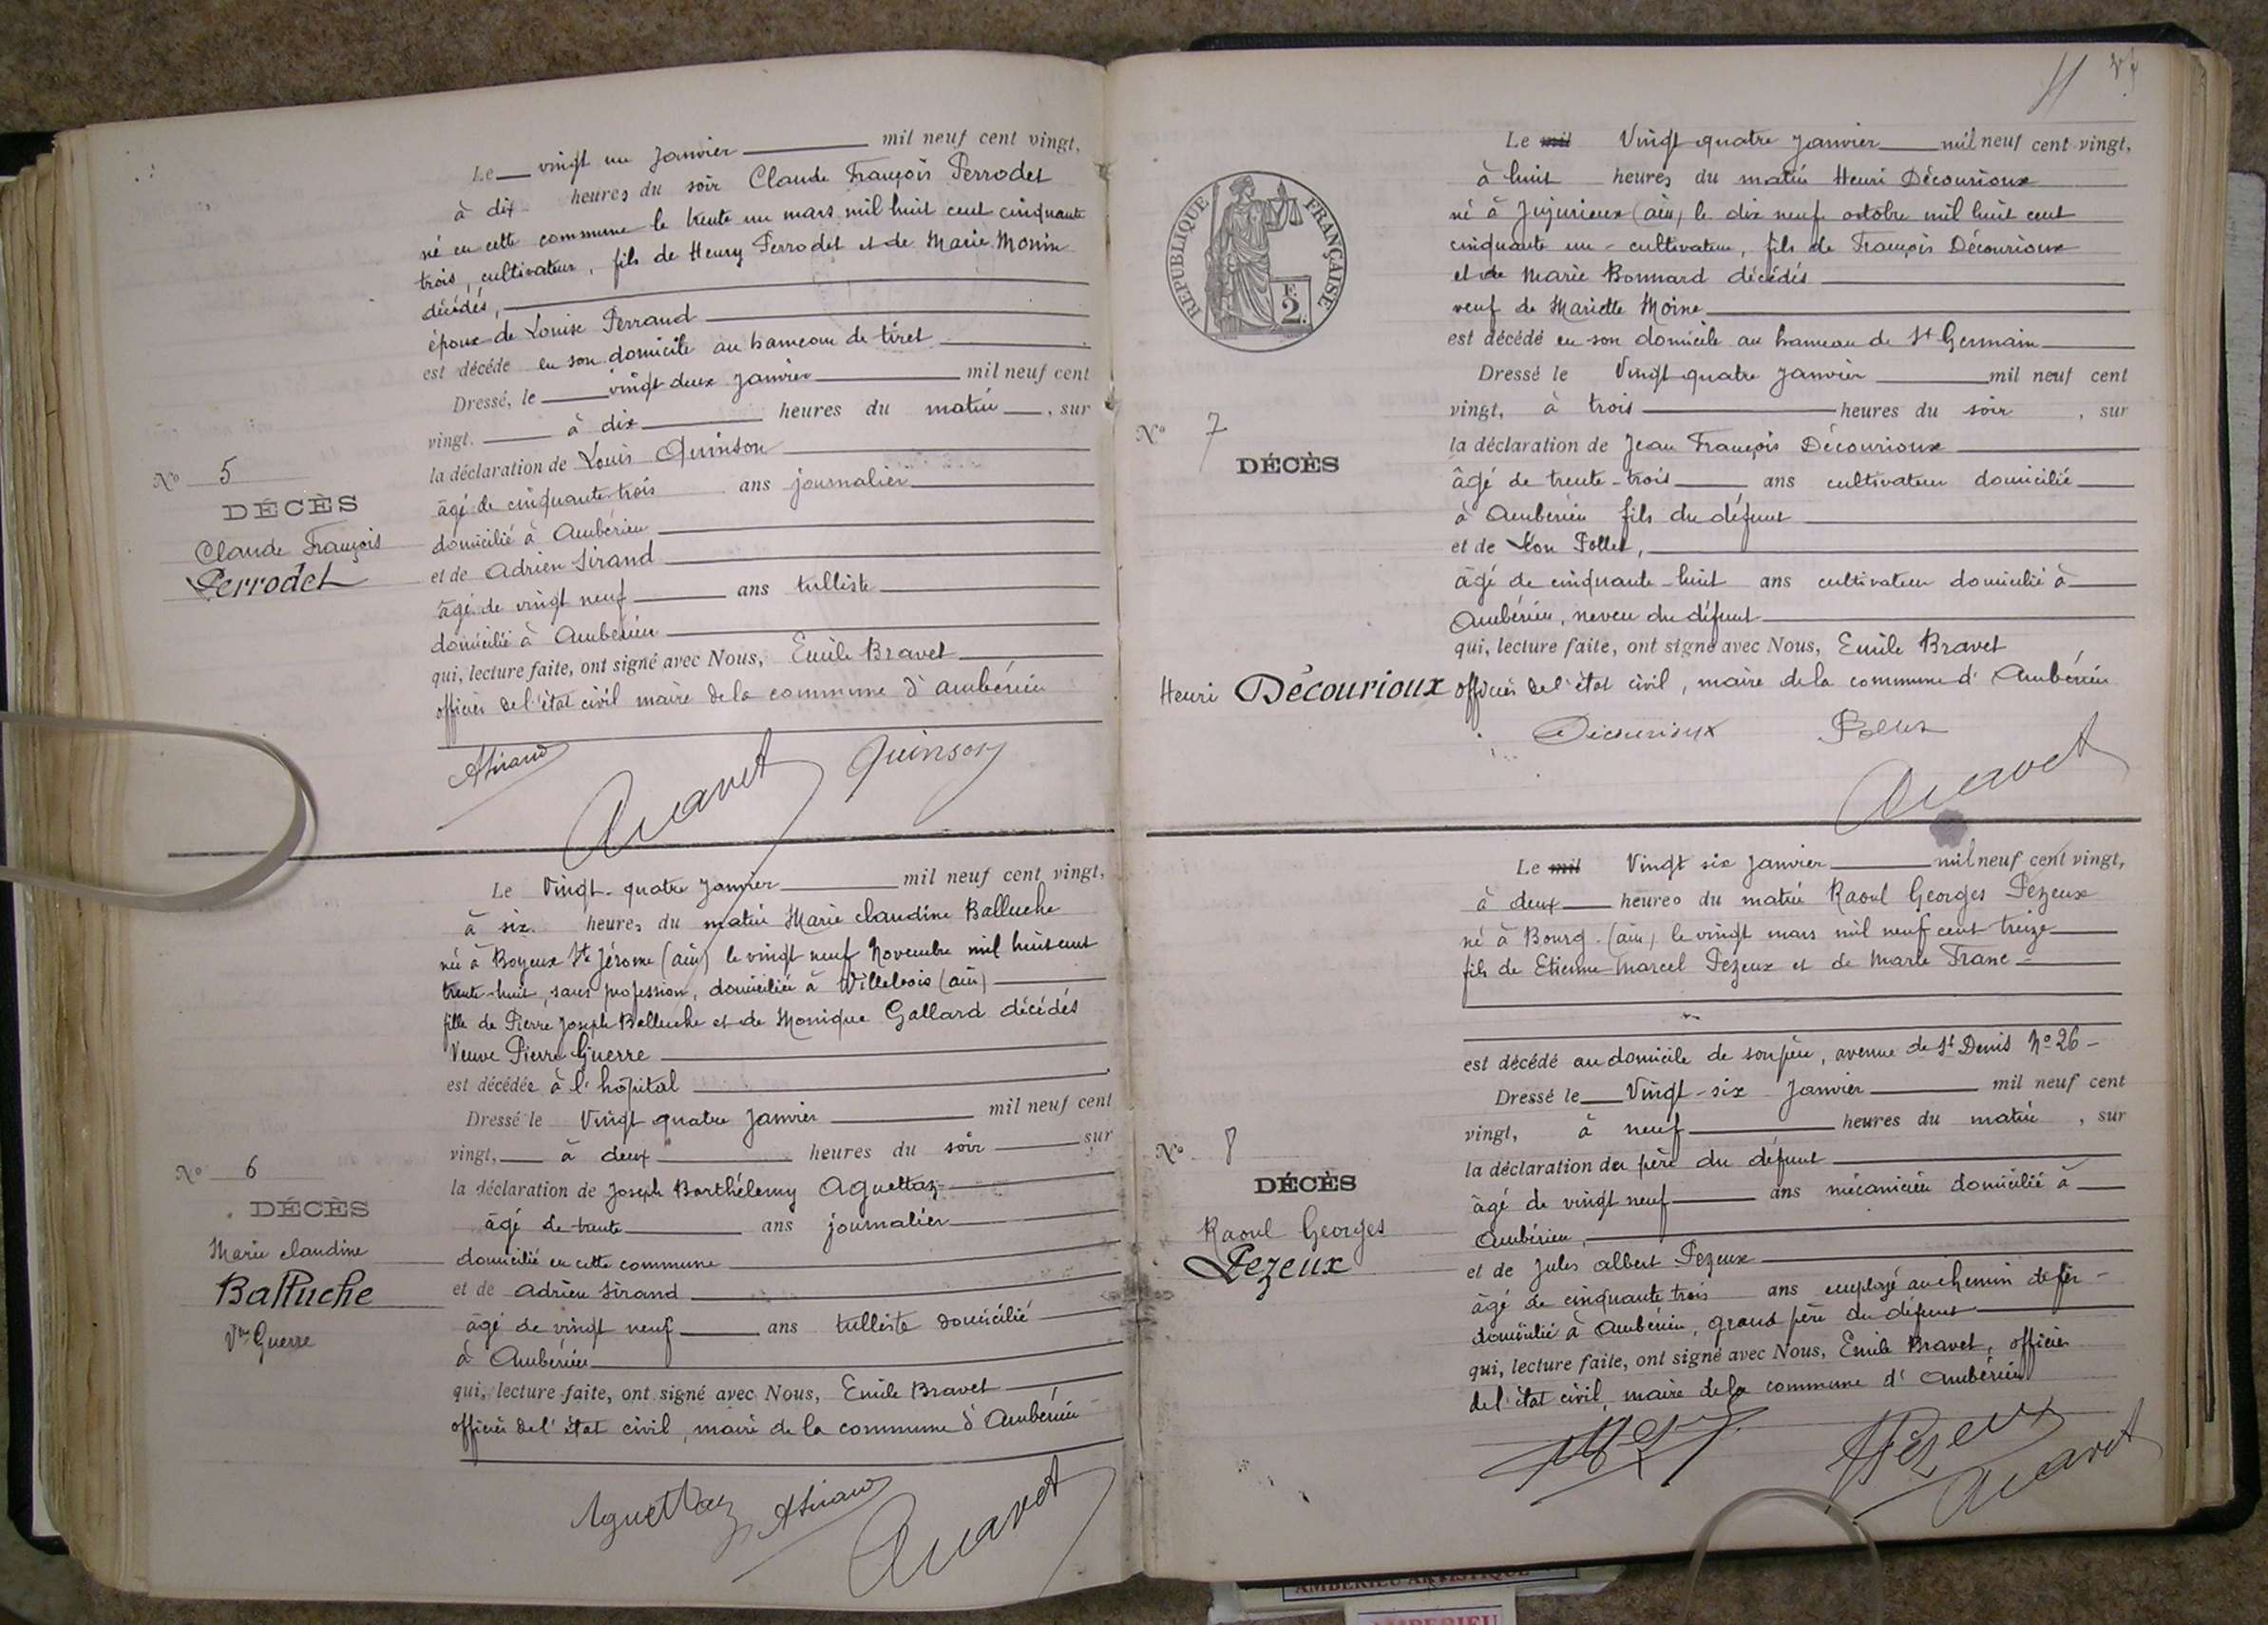 Le vingt un Janvier mil neuf cent vingt,
à dix heures du soir Claude François Perrodet
né en cette commune le trente un mars mil huit cent cinquante
trois, cultivateur, fils de Henry Perrodet et de Marie Monin
décédés,
époux de Louise Perraud
est décédé en son domicile au hameau de tiret
Dressé, le vingt deux Janvier mil neuf cent
vingt. à dix heures du matin, sur
la déclaration de Louis Quinson
âgé de cinquante-trois ans journalier
domicilié à Ambérieu
et de Adrien Sirand
âgé de vingt neuf ans tulliste
domicilié à Ambérieu
qui, lecture faite, ont signé avec Nous, Emile Bravet
officier de l'état civil maire de la commune d'Ambérieu
No 5
DÉCÈS
Claude François
Perrodet
ASirand
Bravet
Quinson
Le Vingt-quatre Janvier mil neuf cent vingt,
à six heures du matin Marie Claudine Balluche
née à Boyeux St Jérome (ain) le vingt neuf Novembre mil huit cent
trente-huit, sans profession, domiciliée à Villebois (ain)
fille de Pierre Joseph Balluche et de Monique Gallard décédés
Veuve Pierre Guerre
est décédée à l'hôpital
Dressé le Vingt quatre Janvier mil neuf cent
vingt, à deux heures du soir sur
la déclaration de Joseph Barthélemy Aguettaz
âgé de trente ans journalier
domicilié en cette commune
et de Adrien Sirand
âgé de vingt neuf ans tulliste domicilié
à Ambérieu
qui, lecture faite, ont signé avec Nous, Emile Bravet
officier de l'état civil, maire de la commune d'Ambérieu
No 6
DÉCÈS
Marie Claudine
Balluche
Vve Guerre
Aguettaz
ASirand
Bravet
11
RÉPUBLIQUE FRANÇAISE
F.
2.
Le mil Vingt quatre Janvier mil neuf cent vingt,
à huit heures du matin Henri Décourioux
né à Jujurieux (ain) le dix neuf octobre mil huit cent
cinquante un - cultivateur, fils de François Décourioux
et de Marie Bonnard décédés
veuf de Mariette Moine
est décédé en son domicile au hameau de St Germain
Dressé le Vingt quatre Janvier mil neuf cent
vingt, à trois heures du soir, sur
la déclaration de Jean François Décourioux
âgé de trente-trois ans cultivateur domicilié
à Ambérieu fils du défunt
et de Léon Pollet,
âgé de cinquante-huit ans cultivateur domicilié à
Ambérieu, neveu du défunt
qui, lecture faite, ont signé avec Nous, Emile Bravet
officier de l'état civil, maire de la commune d'Ambérieu
No 7
DÉCÈS
Henri Décourioux
Décourioux
Pollet
Bravet
Le mil Vingt six Janvier mil neuf cent vingt,
à deux heures du matin Raoul Georges Pezeux
né à Bourg (ain) le vingt mars mil neuf cent treize
fils de Etienne Marcel Pezeux et de Marie Franc
est décédé au domicile de son père, avenue de St Denis No 26
Dressé le Vingt-six Janvier mil neuf cent
vingt, à neuf heures du matin, sur
la déclaration du père du défunt
âgé de vingt neuf ans mécanicien domicilié à
Ambérieu,
et de Jules Albert Pezeux
âgé de cinquante trois ans employé au chemin de fer
domicilié à Ambérieu, grand père du défunt
qui, lecture faite, ont signé avec Nous, Emile Bravet, officier
de l'état civil, maire de la commune d'Ambérieu
No 8
DÉCÈS
Raoul Georges
Pezeux
Pezeux
Bravet
AMBERIEU ARTISTIQUE
AMBERIEU